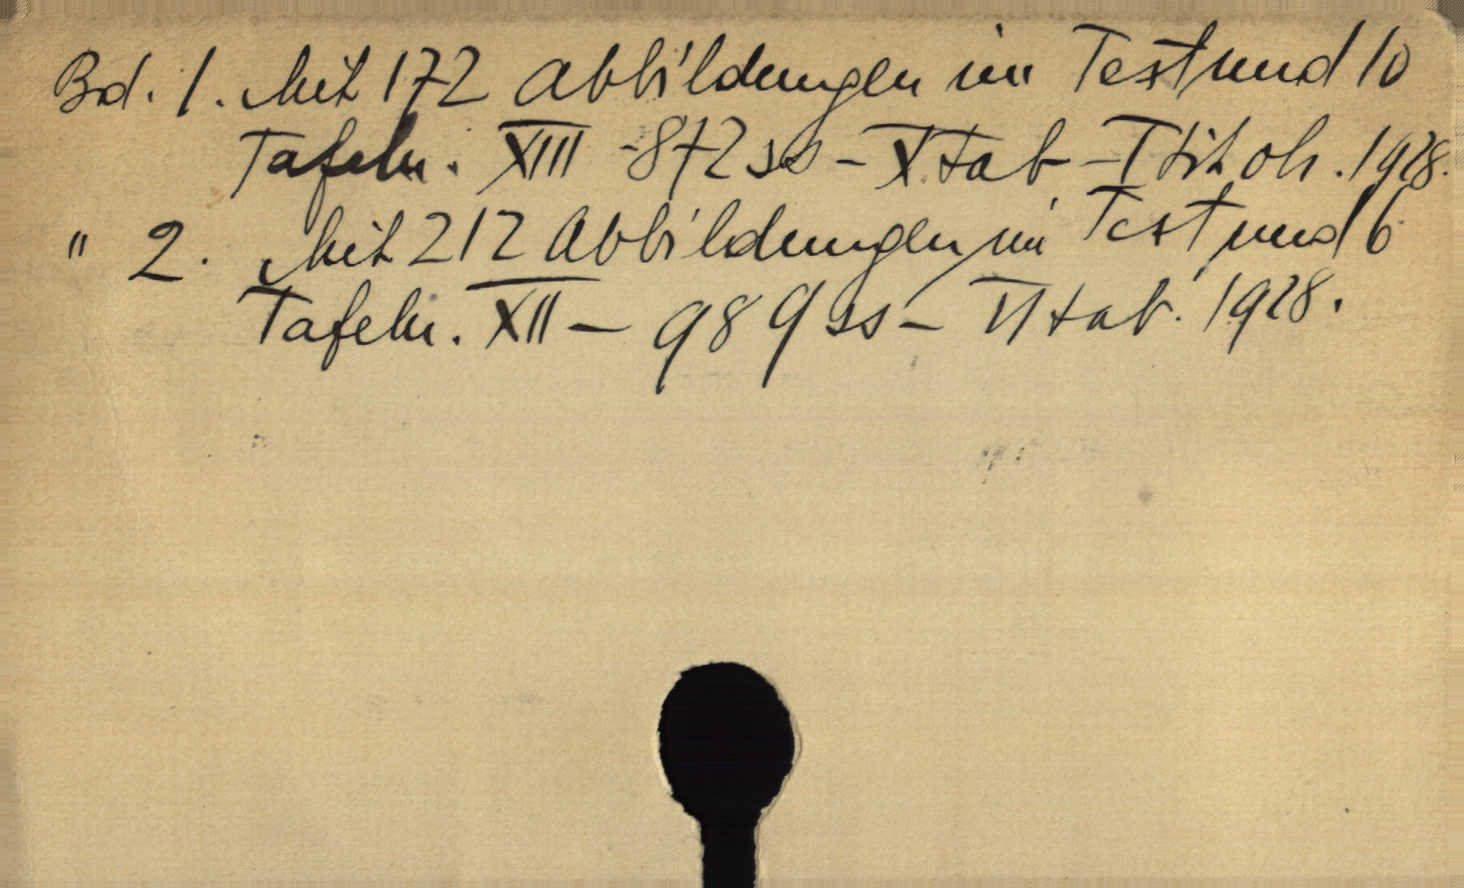 Bd. 1. Mit 172 Abbildungen im Text und 10
Tafeln. XIII - 872 ss - X tab - I tit. oh. 1928.
" 2. Mit 212 Abbildungen im Text und 6
Tafeln. XII - 989 ss - VI tab. 1928.